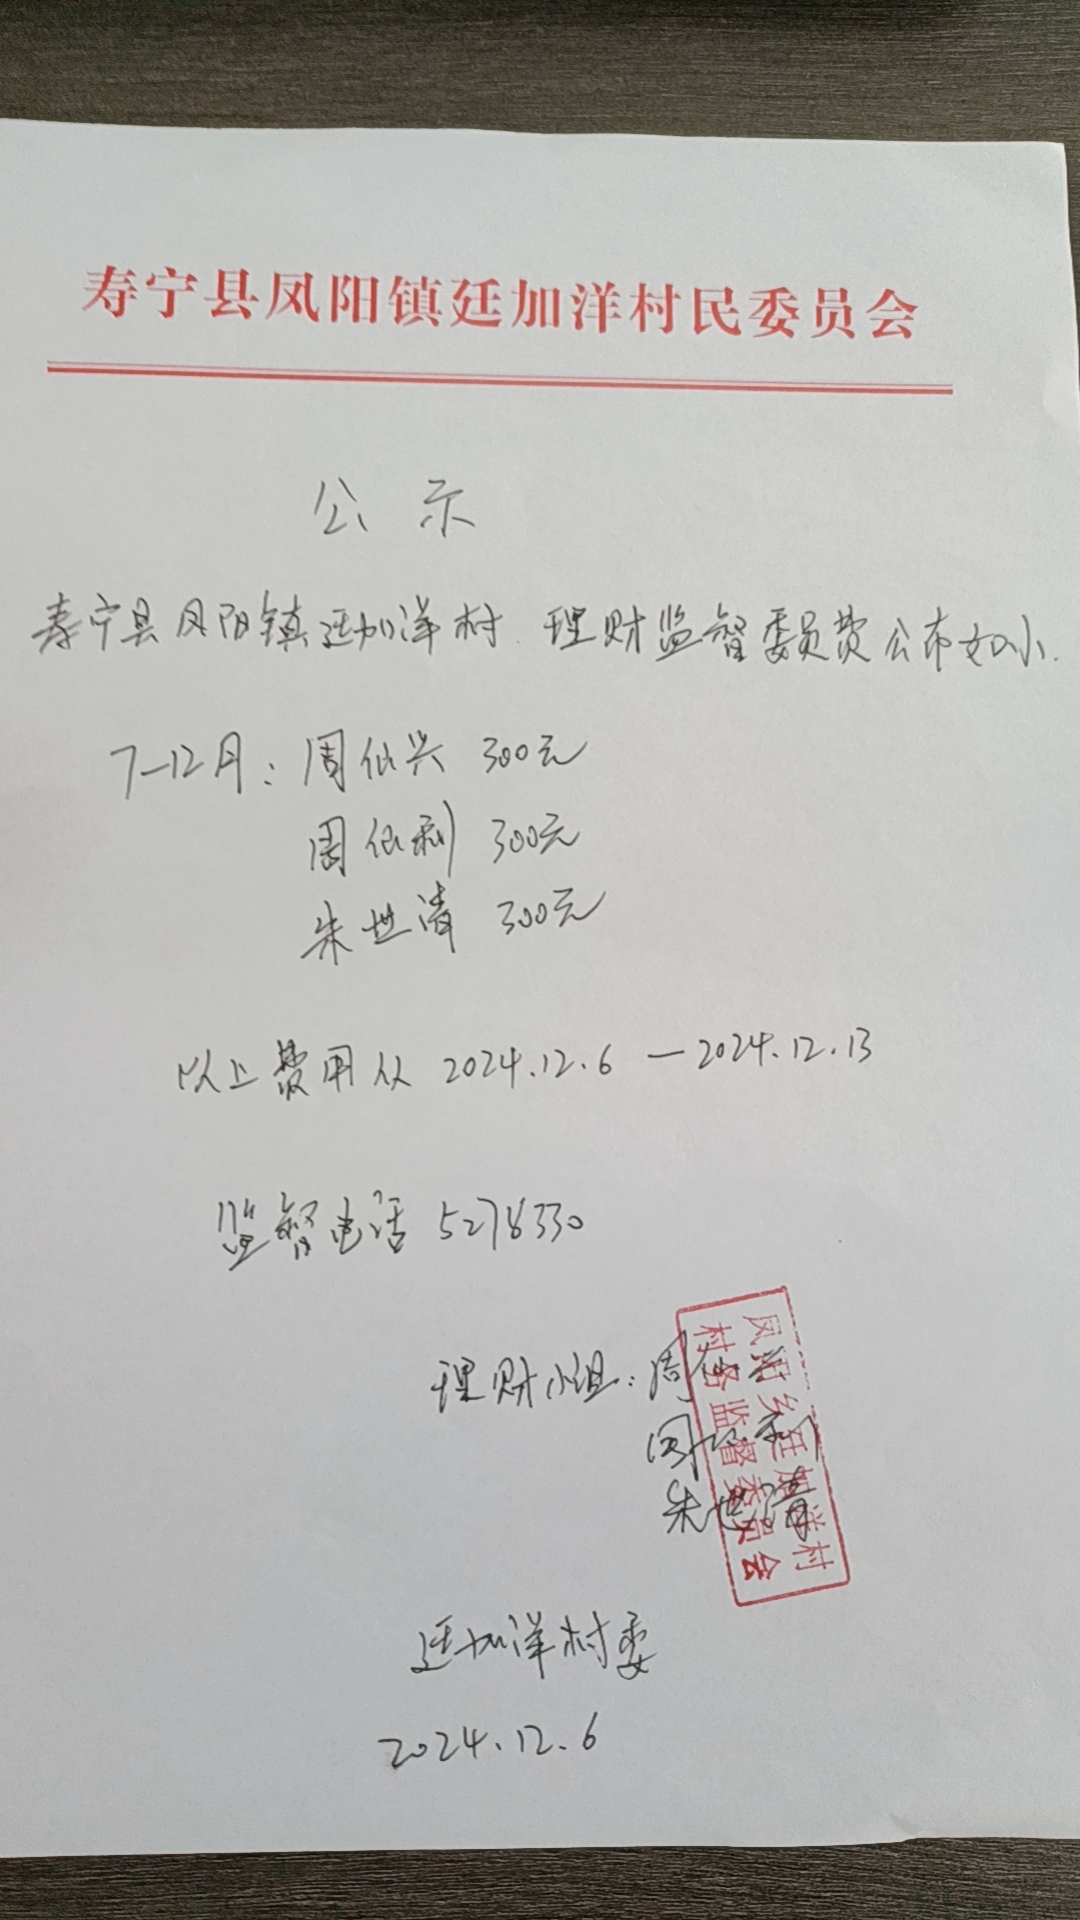 寿宁县凤阳镇廷加洋村民委员会
公示
寿宁县凤阳镇廷加洋村 理财监督委员费公布如小.
7-12月: 周仙兴 300元
周仙利 300元
朱世清 300元
以上费用从 2024.12.6 — 2024.12.13
监督电话 5278330
理财小组: 周
周仙利
朱世清
凤阳乡廷加洋村
村务监督委员会
廷加洋村委
2024.12.6